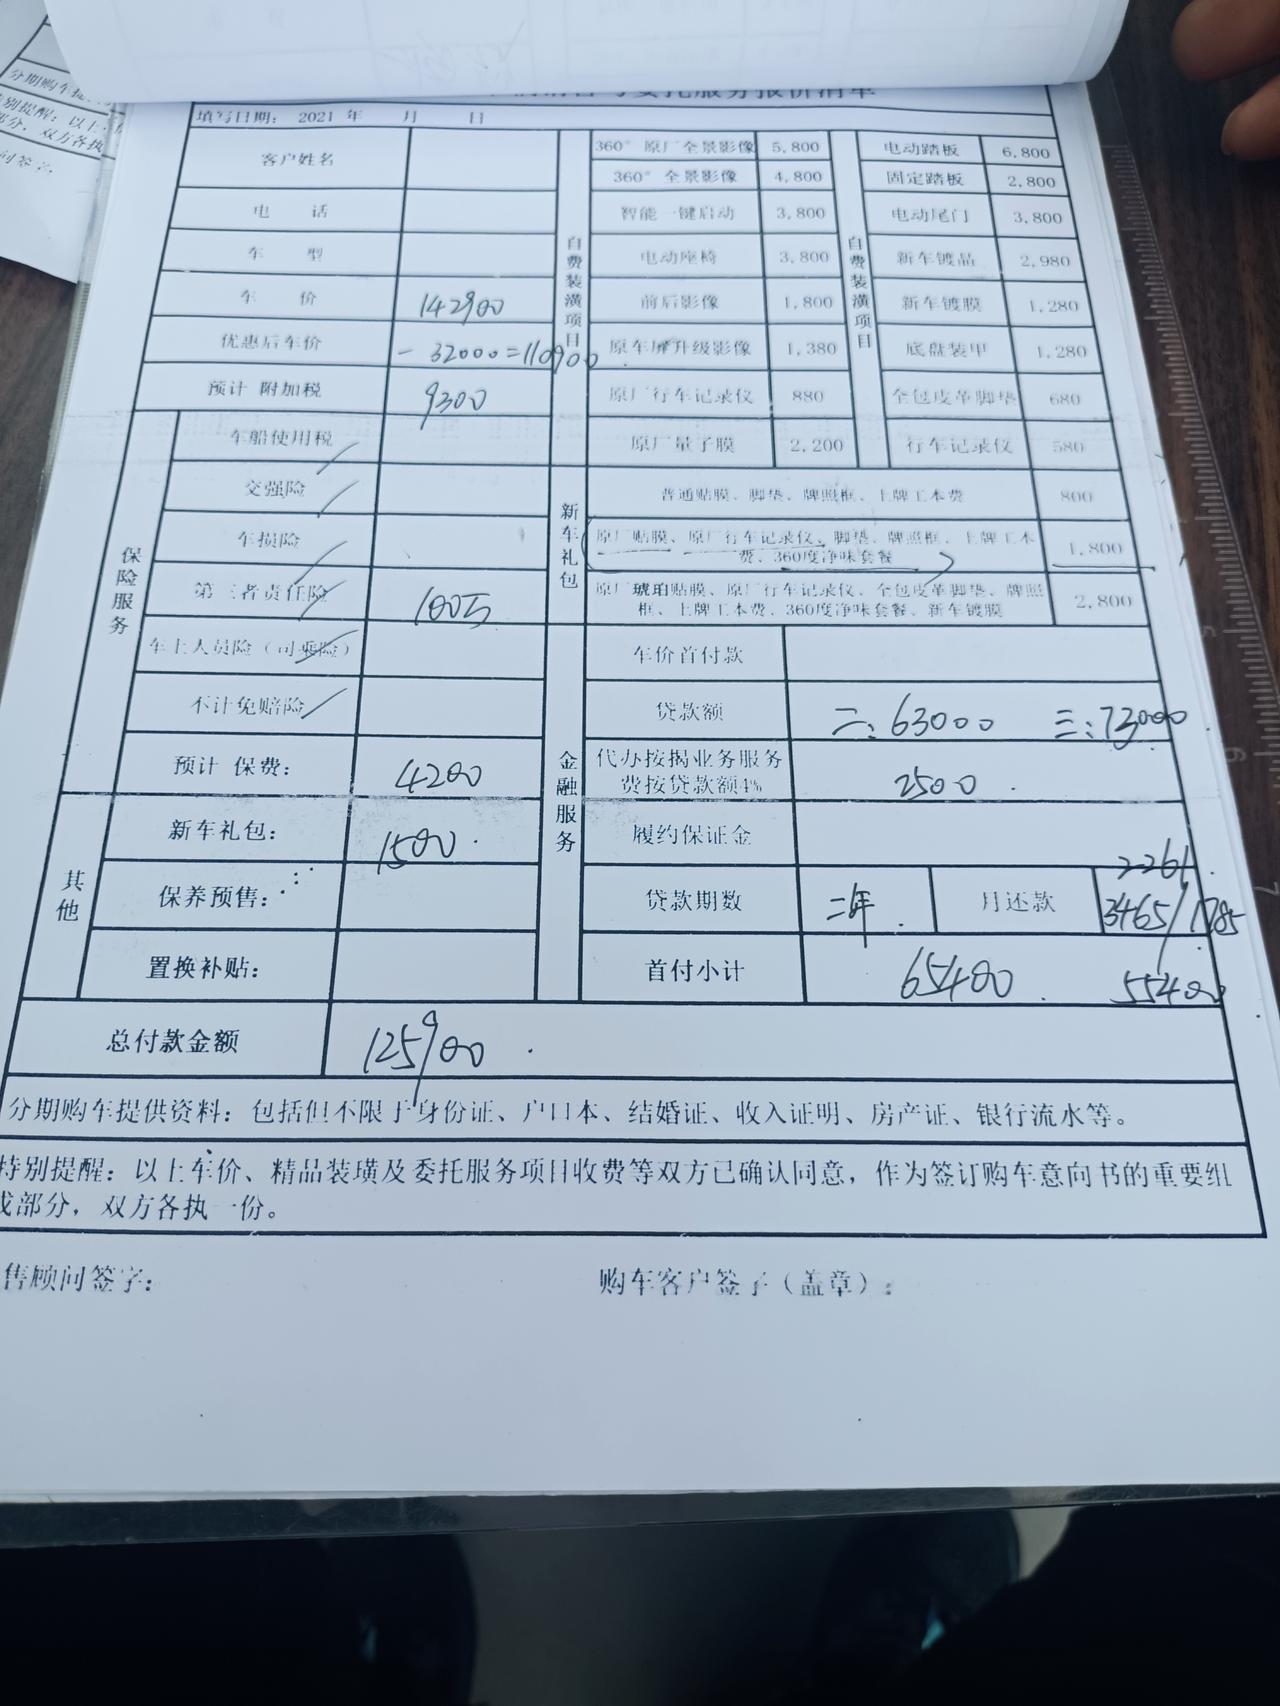 服务报价清单
填写日期： 2021 年 月 日
客户姓名
电 话
车 型
车 价 142900
优惠后车价 - 32000=110900
预计 附加税 9300
自费装潢项目
360° 原厂全景影像 5,800
360° 全景影像 4,800
智能一键启动 3,800
电动座椅 3,800
前后影像 1,800
原车屏升级影像 1,380
原厂行车记录仪 880
原厂量子膜 2,200
自费装潢项目
电动踏板 6,800
固定踏板 2,800
电动尾门 3,800
新车镀晶 2,980
新车镀膜 1,280
底盘装甲 1,280
全包皮革脚垫 680
行车记录仪 580
保险服务
车船使用税
交强险
车损险
第三者责任险 100万
车上人员险（司乘险）
不计免赔险
预计 保费： 4200
新车礼包
普通贴膜、脚垫、牌照框、上牌工本费 800
原厂贴膜、原厂行车记录仪、脚垫、牌照框、上牌工本
费、360度净味套餐 1,800
原厂琥珀贴膜、原厂行车记录仪、全包皮革脚垫、牌照
框、上牌工本费、360度净味套餐、新车镀膜 2,800
金融服务
车价首付款
贷款额 二、63000 三、73000
代办按揭业务服务
费按贷款额4% 2500
履约保证金
2261
贷款期数 二年 月还款 3465/1785
首付小计 65400 55400
其他
新车礼包： 1500
保养预售：
置换补贴：
总付款金额 125900
分期购车提供资料：包括但不限于身份证、户口本、结婚证、收入证明、房产证、银行流水等。
特别提醒：以上车价、精品装璜及委托服务项目收费等双方已确认同意，作为签订购车意向书的重要组
成部分，双方各执一份。
售顾问签字：
购车客户签字（盖章）：
分期购车
别提醒：以上
部分，双方各执
问签字：